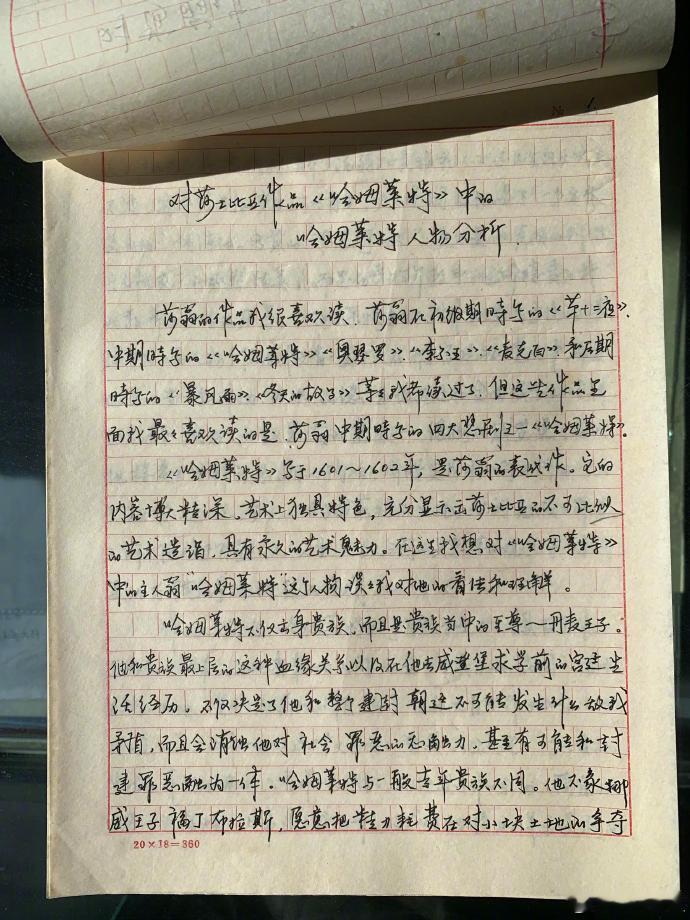 对莎士比亚作品《哈姆莱特》中的
哈姆莱特人物分析.
莎翁的作品我很喜欢读.莎翁在初级期时写的《第十二夜》.
中期时写的《哈姆莱特》《奥瑟罗》.《李尔王》.《麦克白》.和后期
时写的《暴风雨》.《冬天的故事》等等我都读过了.但这些作品里
面我最最喜欢读的是.莎翁中期时写的四大悲剧之一《哈姆莱特》.
《哈姆莱特》写于1601～1602年,是莎翁的表代作。它的
内容博大精深.艺术上独具特色,充分显示出莎士比亚的不可比似
的艺术造诣,具有永久的艺术魅力。在这里我想对《哈姆莱特》
中的主人翁"哈姆莱特"这个人物谈谈我对他的看法和理解。
哈姆莱特不仅出身贵族.而且是贵族当中的至尊一丹麦王子。
他和贵族最上层的这种血缘关系以及在他去威登堡求学前的宫廷生
活经历。不仅决定了他和整个建封朝廷不可能发生什么敌我
矛盾,而且会消蚀他对社会罪恶的洞察力,甚至有可能和封
建罪恶融为一体.哈姆莱特与一般青年贵族不同。他不象挪
威王子福丁布拉斯,愿意把精力耗费在对小块土地的争夺
20×18=360